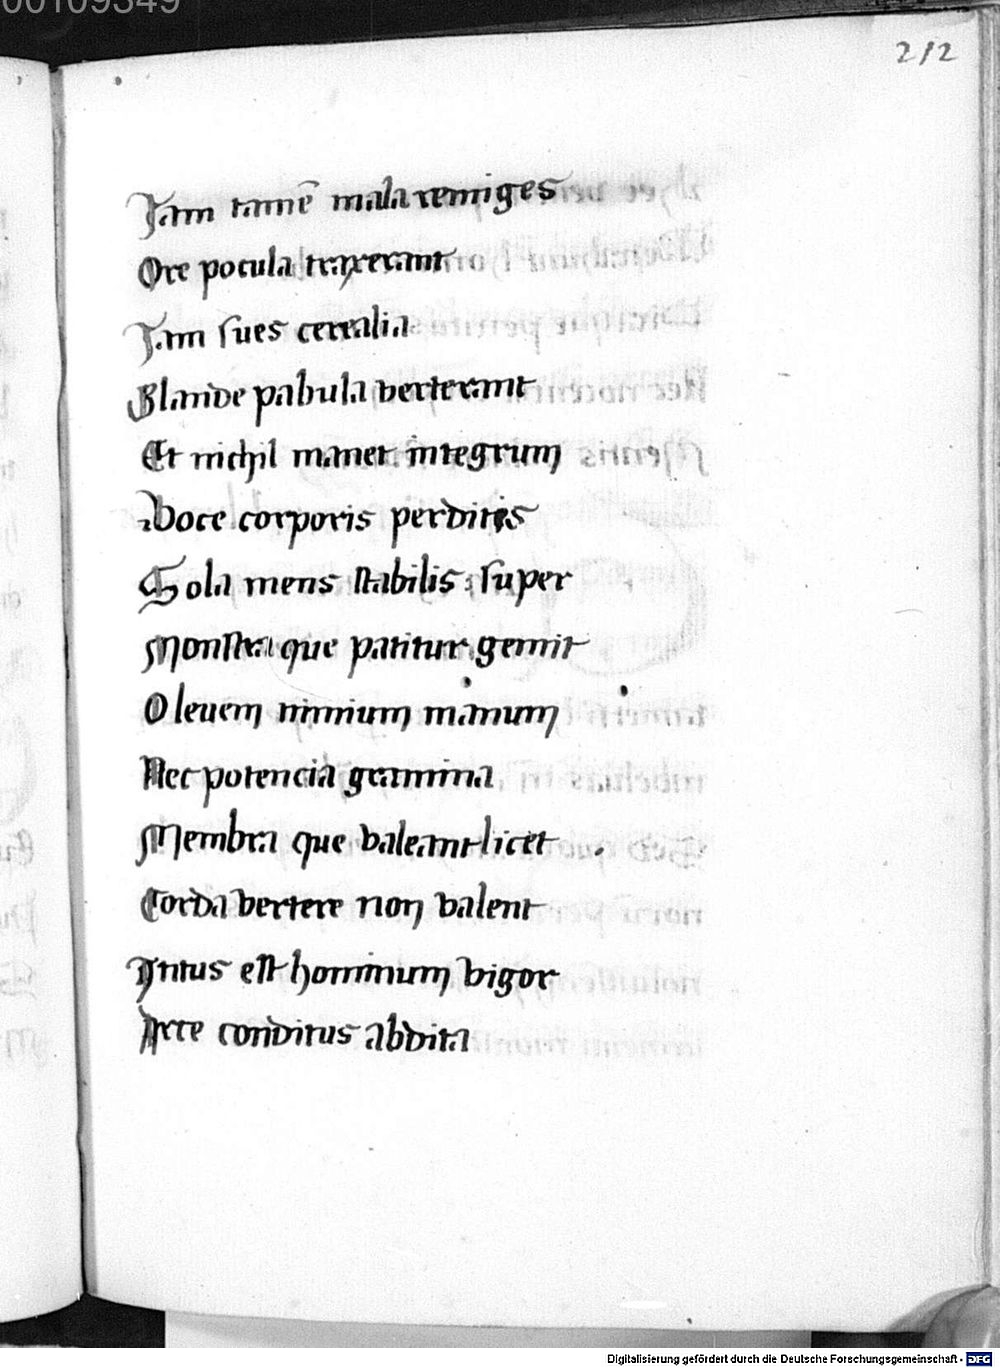 00109349
212
Jam tamē mala remiges
Ore pocula traxerant
Jam sues cerealia
Glande pabula verterant
Et nichil manet integrum
Voce corporis perditis
Sola mens stabilis super
Monstra que patitur gemit
O leuem nimium manum
Nec potencia gramina
Membra que valeant licet
Corda vertere non valent
Intus est hominum vigor
Arce conditus abdita
Digitalisierung gefördert durch die Deutsche Forschungsgemeinschaft - DFG